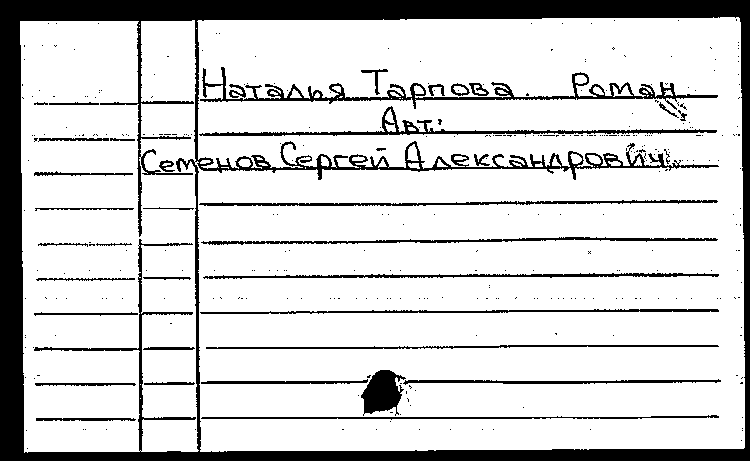 Наталья Тарпова. Роман
Авт.:
Семенов, Сергей Александрович